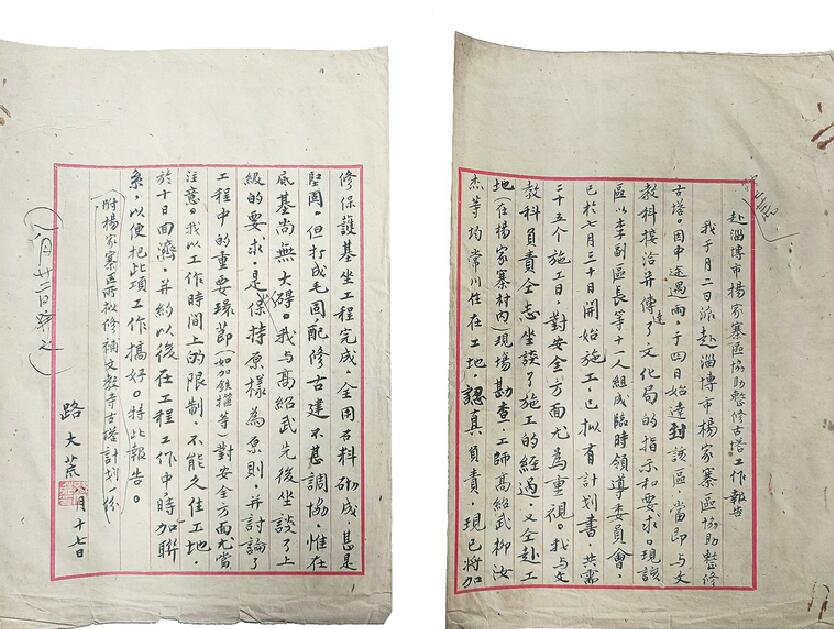 赴淄博市楊家寨區協助整修古塔工作報告
我于月二日派赴淄博市楊家寨區協助整修
古塔。因中途遇雨，于四日始達到該區，當即与文
教科接洽并傳達了文化局的指示和要求。現該
區以李副區長等十一人組成臨時領導委員會，
已於七月三十日開始施工。已拟有計划書，共需
二十五个施工日，對安全方面尤为重視。我与文
教科負責仝志坐談了施工的經過，又仝赴工
地（在楊家寨村內）現場勘查。工师高紹武柳汝
杰等均常川住在工地，認真負責，現已將加
修保護基坐工程完成，全用石料砌成，甚是
堅固。但打成毛面，配修古建不甚調協，惟在
底基尚無大礙。我与高紹武先後坐談了上
級的要求，是保持原樣為原則，并討論了
工程中的重要環節（如加鉄箍等）對安全方面尤當
注意。我以工作時間上的限制，不能久住工地，
於十日囬濟，并約以後在工程工作中，時加聯
系，以便把此項工作搞好。特此報告。
附楊家寨區所拟修補文教寺古塔計划一份
路大荒
八月十七日